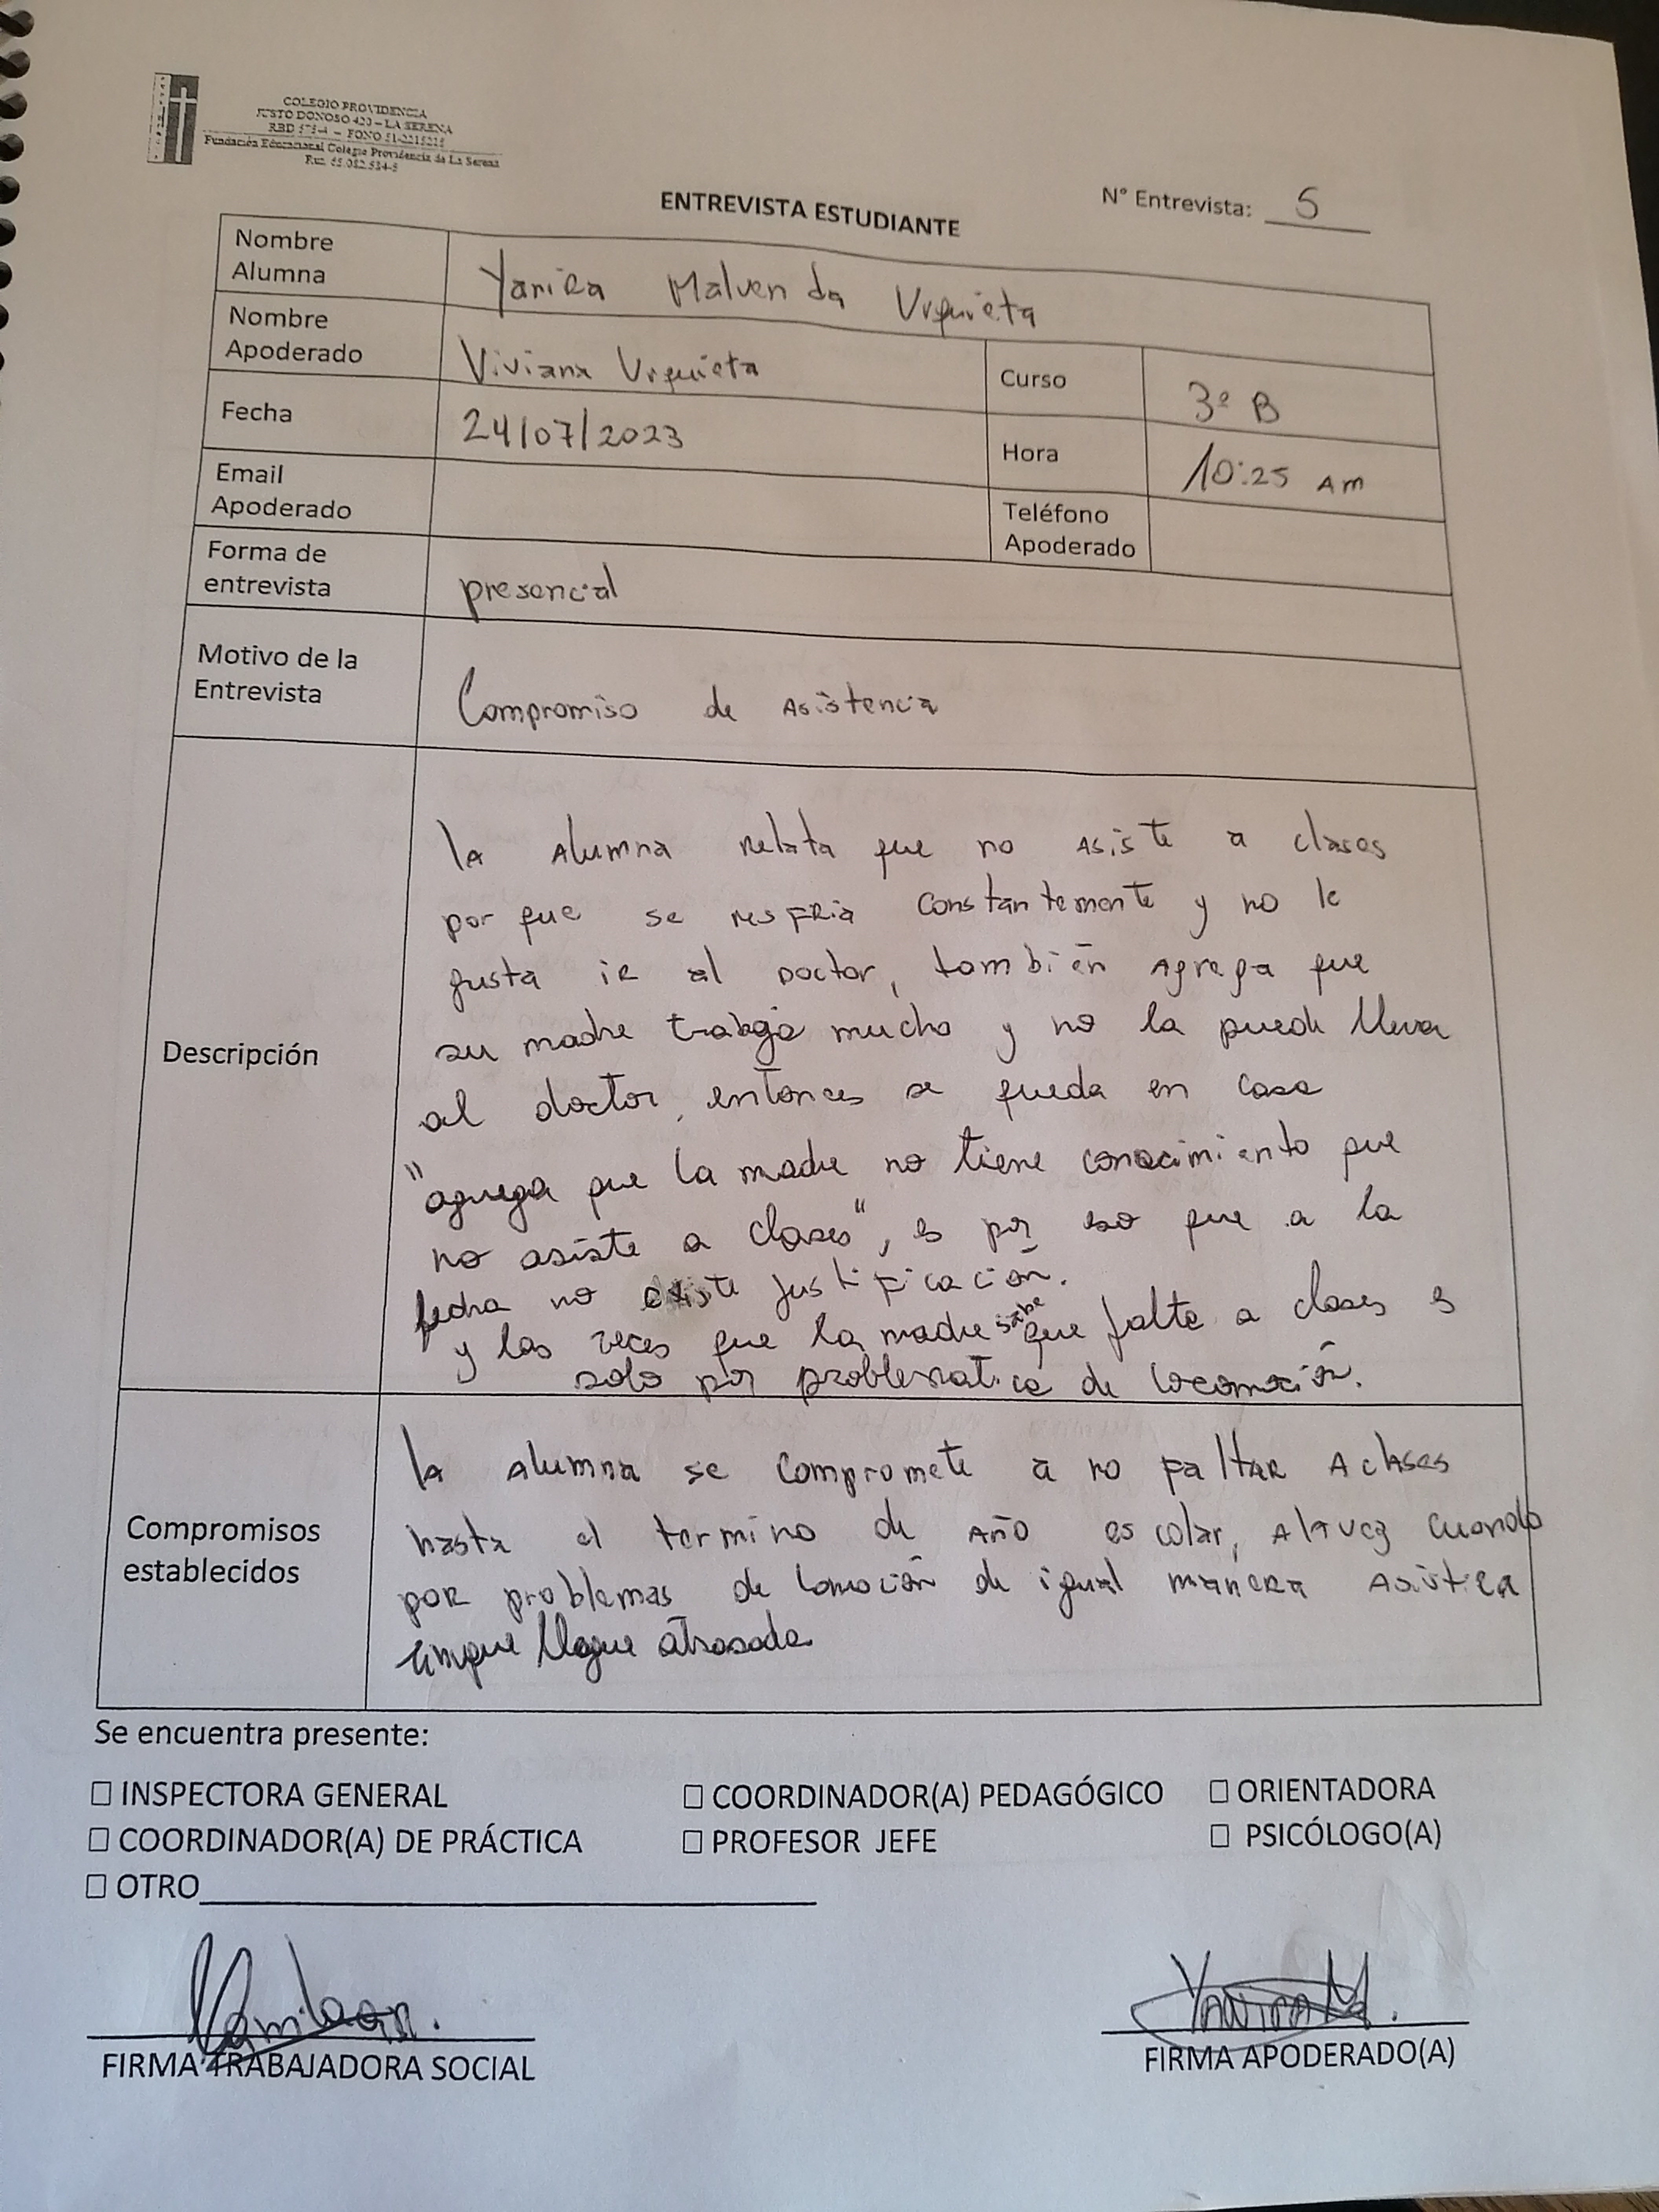 COLEGIO PROVIDENCIA
JUSTO DONOSO 420 – LA SERENA
RBD 575-4 – FONO 51-2215215
Fundación Educacional Colegio Providencia de La Serena
Rut: 65.082.534-5
N° Entrevista: 5
ENTREVISTA ESTUDIANTE
Nombre Alumna Yanira Malvenda Urquieta
Nombre Apoderado Viviana Urquieta Curso 3º B
Fecha 24/07/2023 Hora 10:25 Am
Email Apoderado Teléfono Apoderado
Forma de entrevista presencial
Motivo de la Entrevista Compromiso de Asistencia
Descripción
la Alumna relata que no Asiste a clases
por que se resfria constantemente y no le
gusta ir al Doctor, también Agrega que
su madre trabaja mucho y no la puede llevar
al doctor, entonces se queda en casa
"agrega que la madre no tiene conocimiento que
no asiste a clases", es por eso que a la
fecha no existe justificación.
y las veces que la madre sabe que falte a clases es
solo por problematica de locomoción.
Compromisos establecidos
la Alumna se compromete a no faltar A clases
hasta el termino de Año escolar, Altvez cuando
por problemas de lomoción de igual manera Asistira
aunque llegue atrasada
Se encuentra presente:
☐ INSPECTORA GENERAL ☐ COORDINADOR(A) PEDAGÓGICO ☐ ORIENTADORA
☐ COORDINADOR(A) DE PRÁCTICA ☐ PROFESOR JEFE ☐ PSICÓLOGO(A)
☐ OTRO
Yanira M.
FIRMA TRABAJADORA SOCIAL FIRMA APODERADO(A)